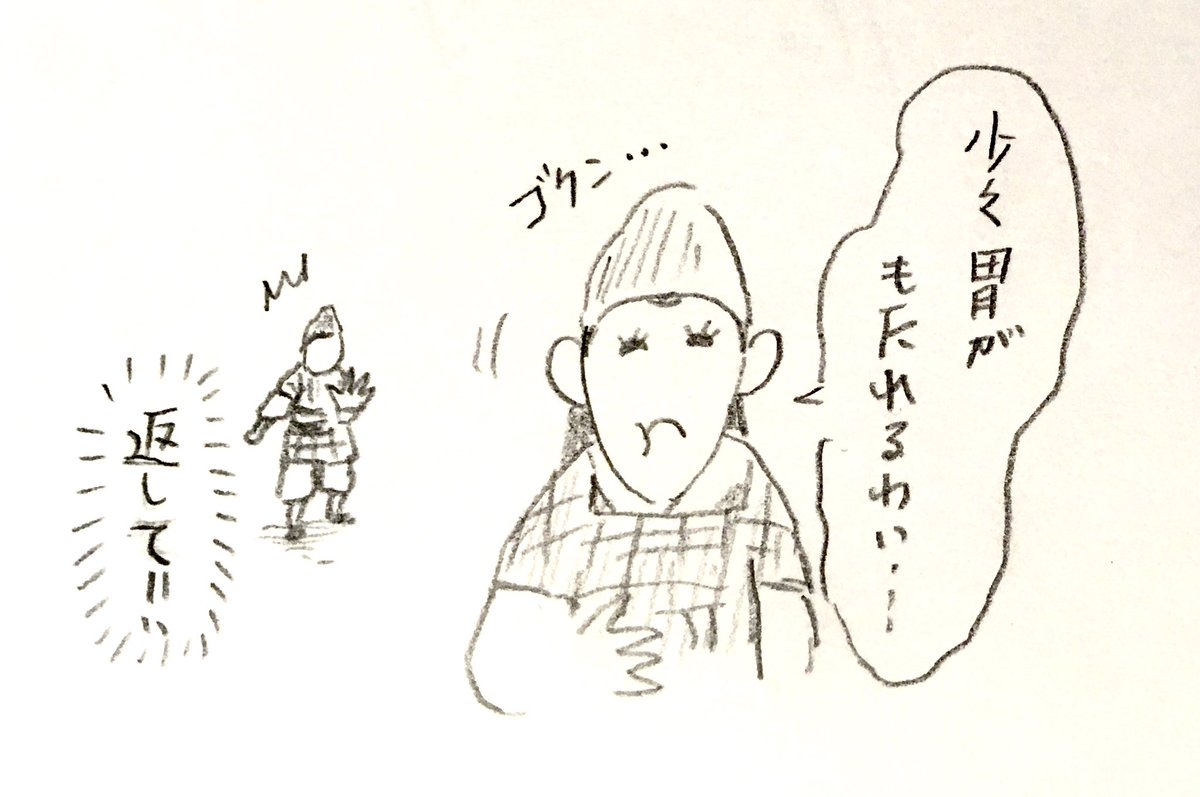 少々胃が
もたれるわい……
ゴクン…
返して!!